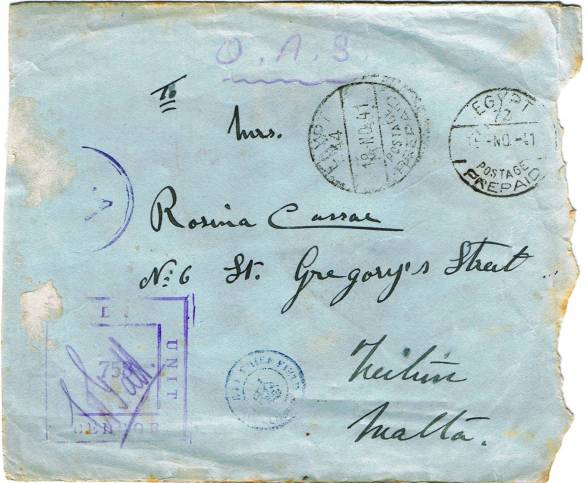 O.A.S.
To
Mrs.
Rosina Cassar
No: 6 St. Gregory's Street
Zeitun
Malta.
EGYPT
44
18 NO 41
POSTAGE
PREPAID
EGYPT
72
-NO.-41
POSTAGE
PREPAID
BY
UNIT
CENSOR